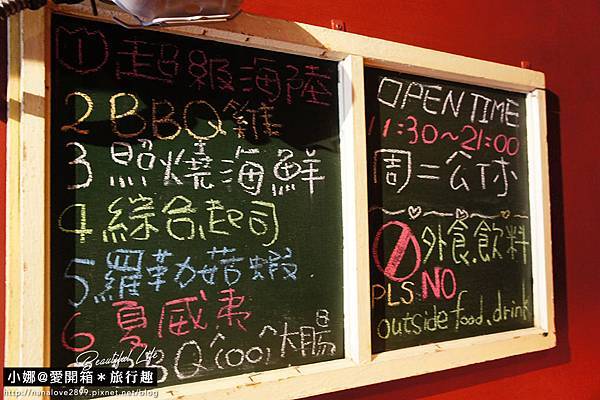 1 超級海陸
2 BBQ雞
3 照燒海鮮
4 綜合起司
5 羅勒菇蝦
6 夏威夷
大腸
OPEN TIME
11:30~21:00
周二公休
外食.飲料
PLS. NO
outside food、drink
Beautiful Life
小娜@愛開箱＊旅行趣
http://nanalove2899.pixnet.net/blog